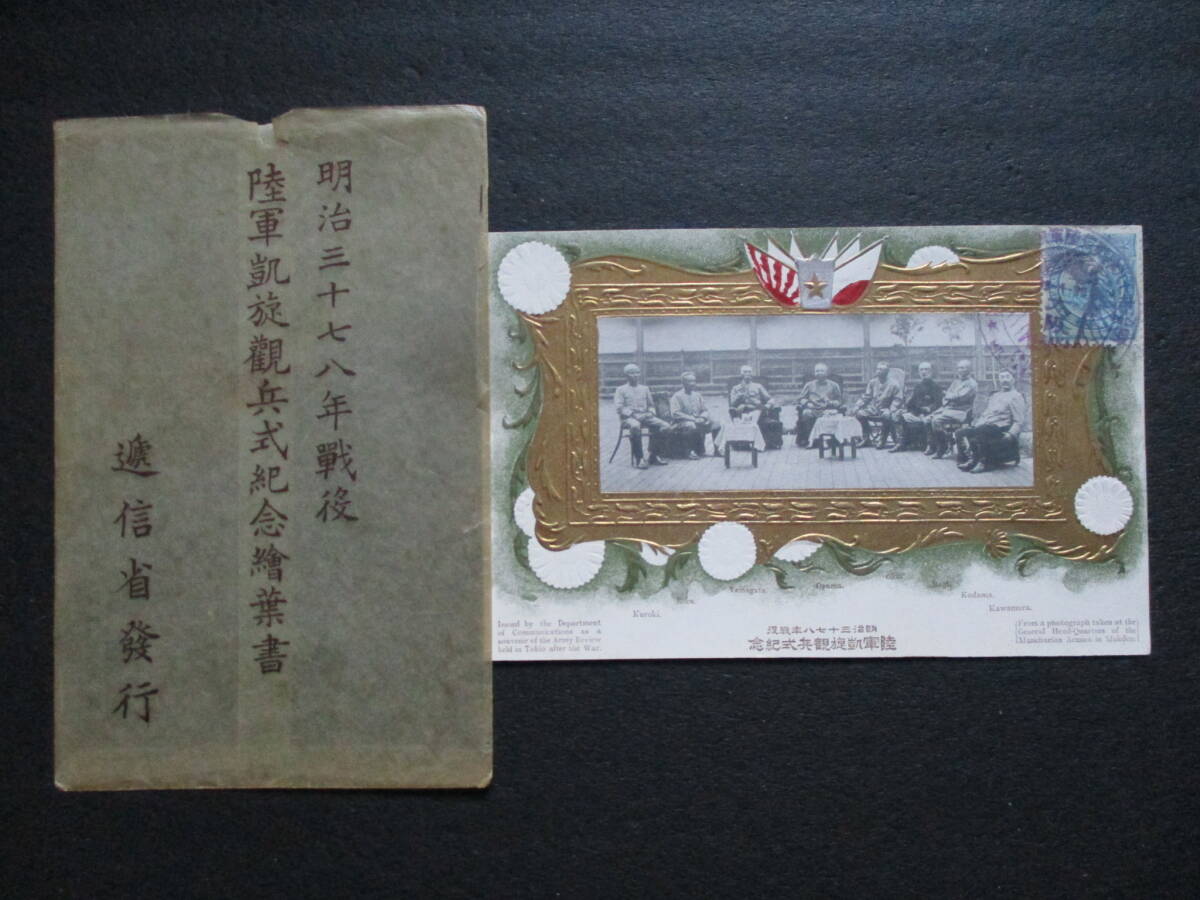 明治三十七八年戰役
陸軍凱旋觀兵式紀念繪葉書
遞信省發行
Kuroki.
Yamagata.
Oyama.
Kodama.
Kawamura.
Issued by the Department
of Communications as a
souvenir of the Army Review
held in Tokio after the War.
明治三十七八年戰役
陸軍凱旋觀兵式紀念
From a photograph taken at the
General Head-Quarters of the
Manchurian Armies in Mukden.